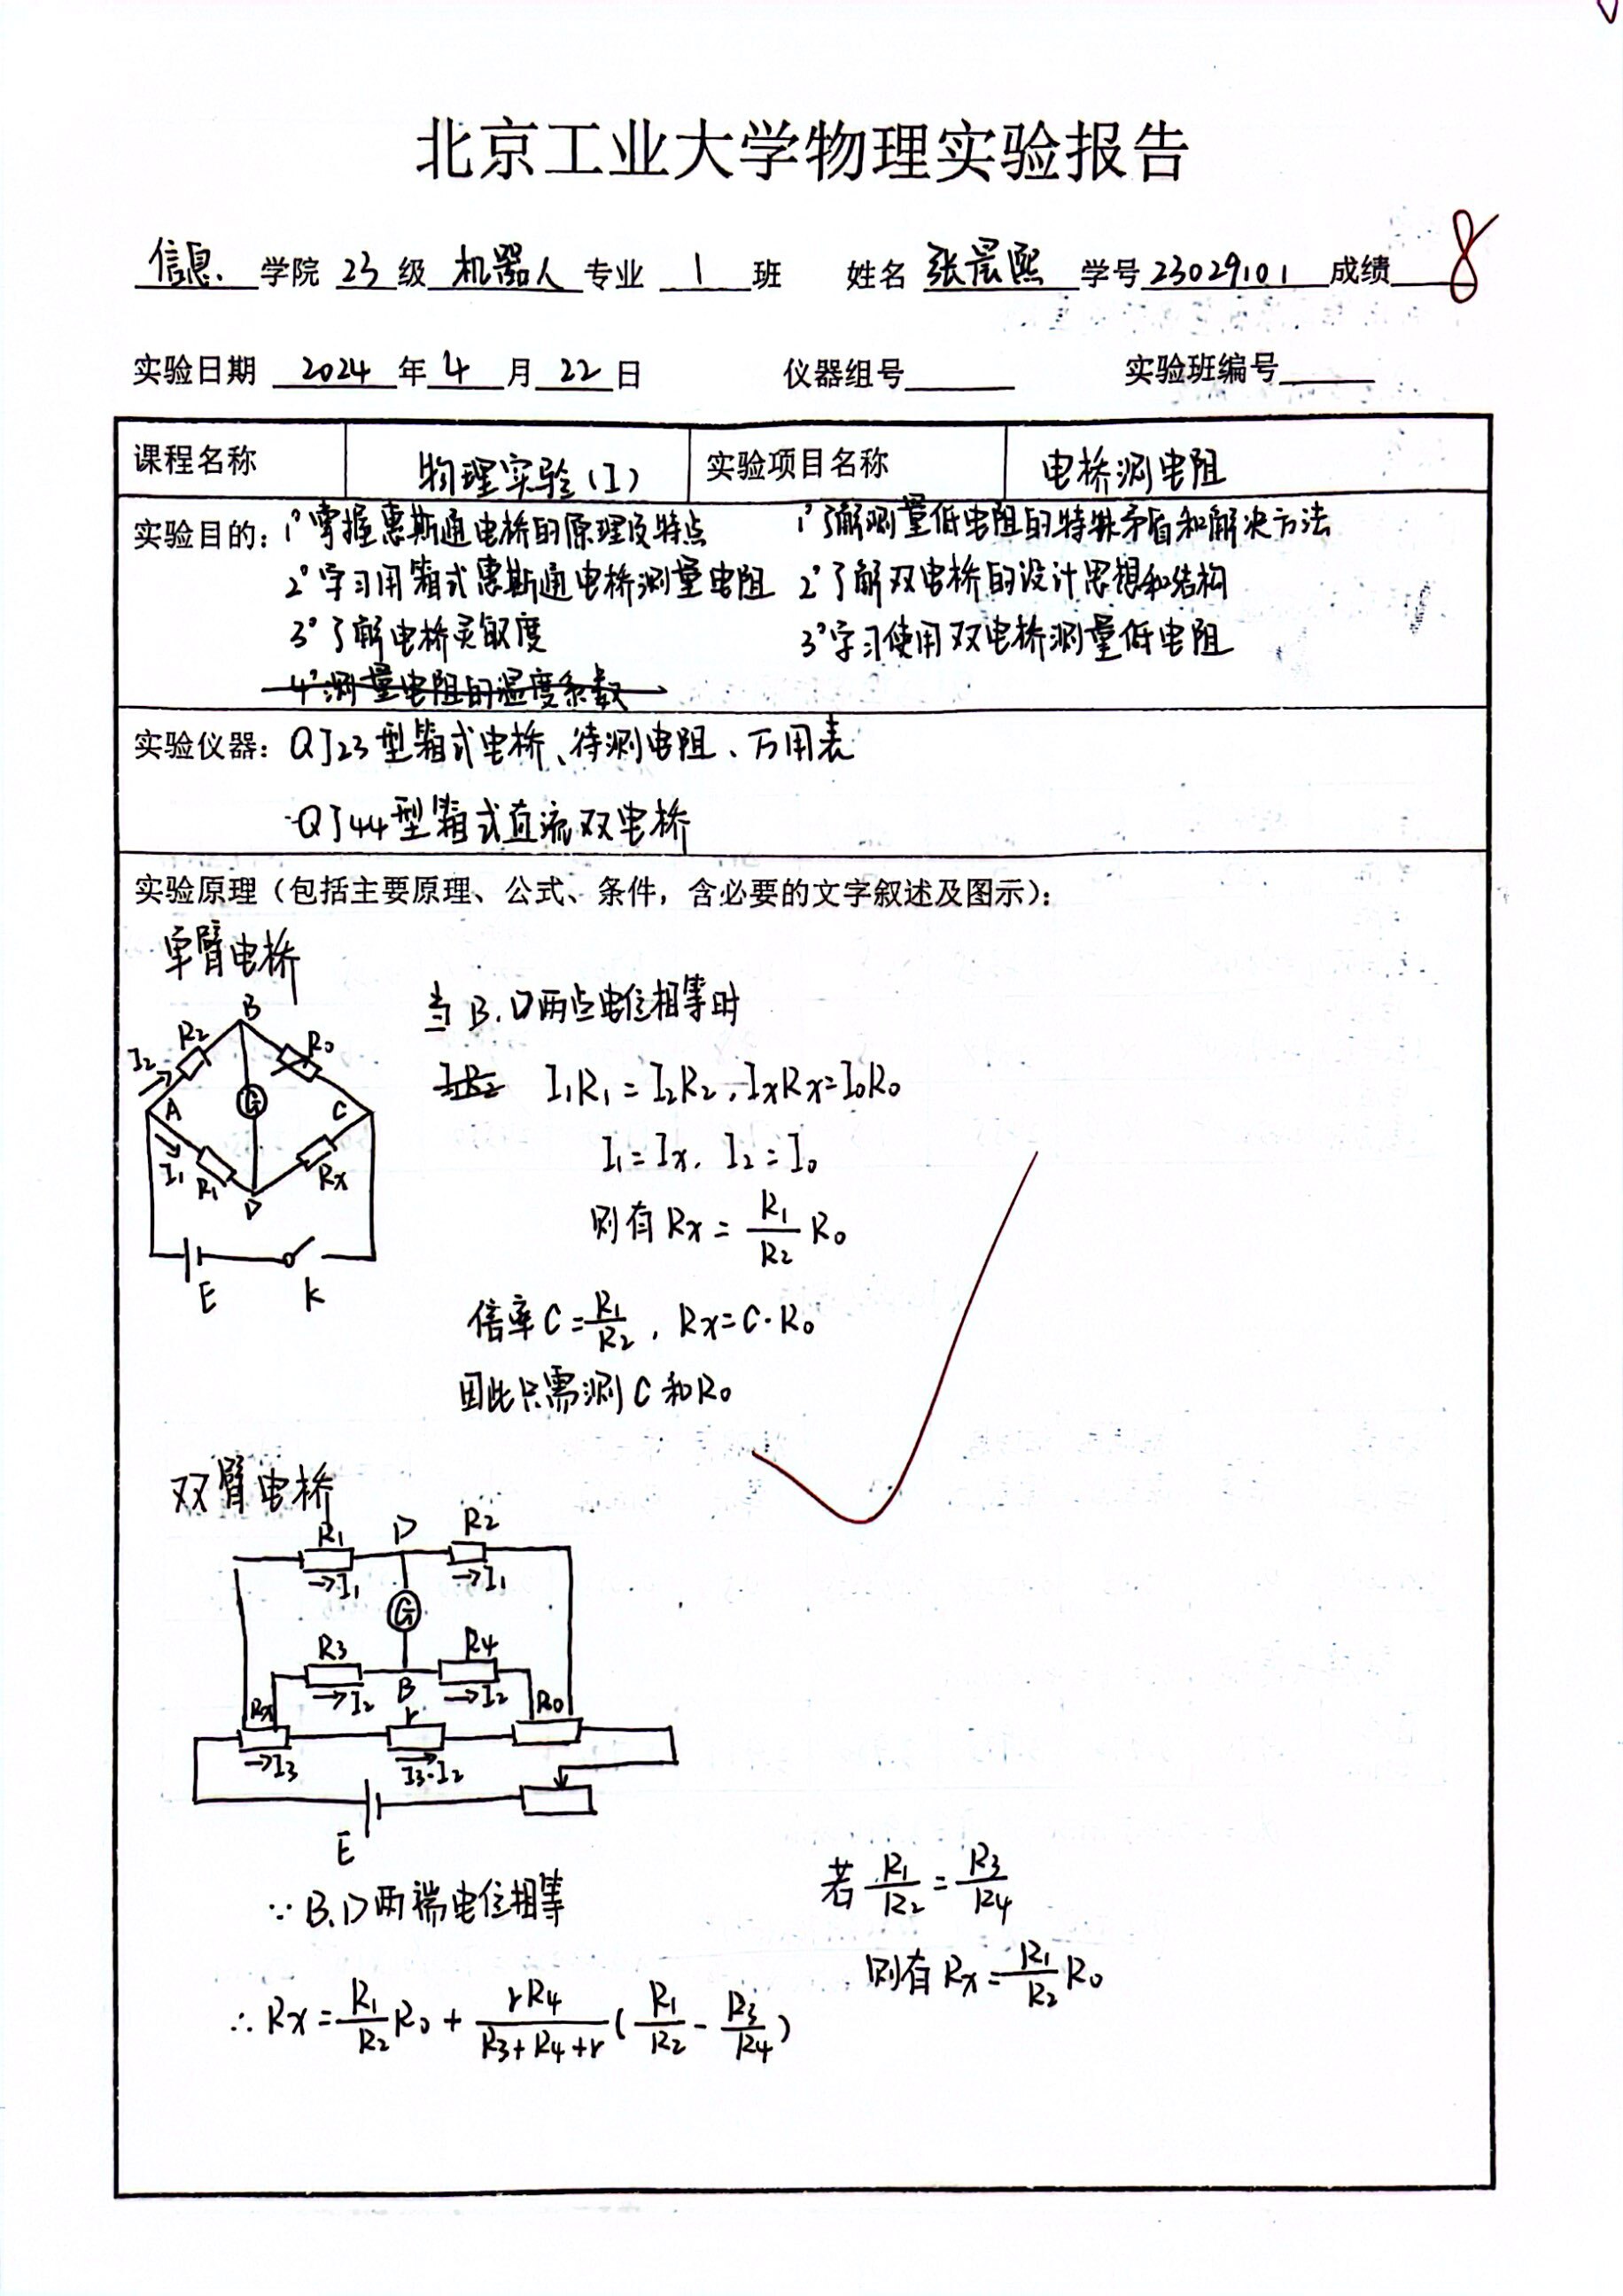 北京工业大学物理实验报告
信息 学院 23 级 机器人 专业 1 班 姓名 张晨熙 学号 23029101 成绩 8
实验日期 2024 年 4 月 22 日 仪器组号 实验班编号
课程名称 物理实验(I) 实验项目名称 电桥测电阻
实验目的: 1° 掌握惠斯通电桥的原理及特点 1° 了解测量低电阻的特殊矛盾和解决方法
2° 学习用箱式惠斯通电桥测量电阻 2° 了解双电桥的设计思想和结构
3° 了解电桥灵敏度 3° 学习使用双电桥测量低电阻
4° 测量电阻的温度系数
实验仪器: QJ23型箱式电桥、待测电阻、万用表
QJ44型箱式直流双电桥
实验原理(包括主要原理、公式、条件,含必要的文字叙述及图示):
单臂电桥
B
R2 R0
I2
A G C
I1 R1 Rx
D
E K
当B、D两点电位相等时
I1R1=I2R2,IxRx=I0R0
I1=Ix, I2=I0
则有 Rx = R1/R2 R0
倍率C=R1/R2, Rx=C·R0
因此只需测C和R0
双臂电桥
R1 D R2
→I1 →I1
G
R3 R4
→I2 B →I2
Rx r R0
→I3 I3-I2
E
∵ B、D两端电位相等
∴ Rx = R1/R2 R0 + rR4/(R3+R4+r) (R1/R2 - R3/R4)
若 R1/R2 = R3/R4
则有 Rx = R1/R2 R0